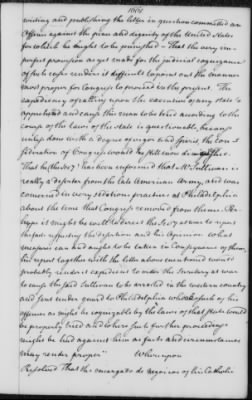 writing and publishing the letter in question committed an
offence against the peace and dignity of the United States
for which he ought to be punished – That the very im=
perfect provision as yet made for the judicial cognizance
of such cases renders it difficult to point out the manner
most proper for Congress to proceed in the present. The
expediency of calling upon the executive of any state to
apprehend and cause the man to be tried according to the
course of the laws of the state is questionable, because
unless done with a degree of vigor and spirit the Con=
federation of Congress would be still more
That he (the Secy.) has been informed that Mr. Sullivan
really a deserter from the late American Army, and was
concerned in very seditious practices at Philadelphia
about the time that Congress removed from thence. Per
haps it might be well to direct the Secy. at war to report
the facts respecting the desertion and his opinion what
measures can and ought to be taken in consequence of them;
his report together with the letter above mentioned would
probably render it expedient to order the Secretary at war
to cause the said Sullivan to be arrested in the western country
and sent under guard to Philadelphia where such of his
offences as might be cognizable by the laws of that state would
be properly tried and where such further proceedings
might be had against him as facts and circumstances
may render proper" Whereupon
Resolved That the encargado de negocios of his Catholic